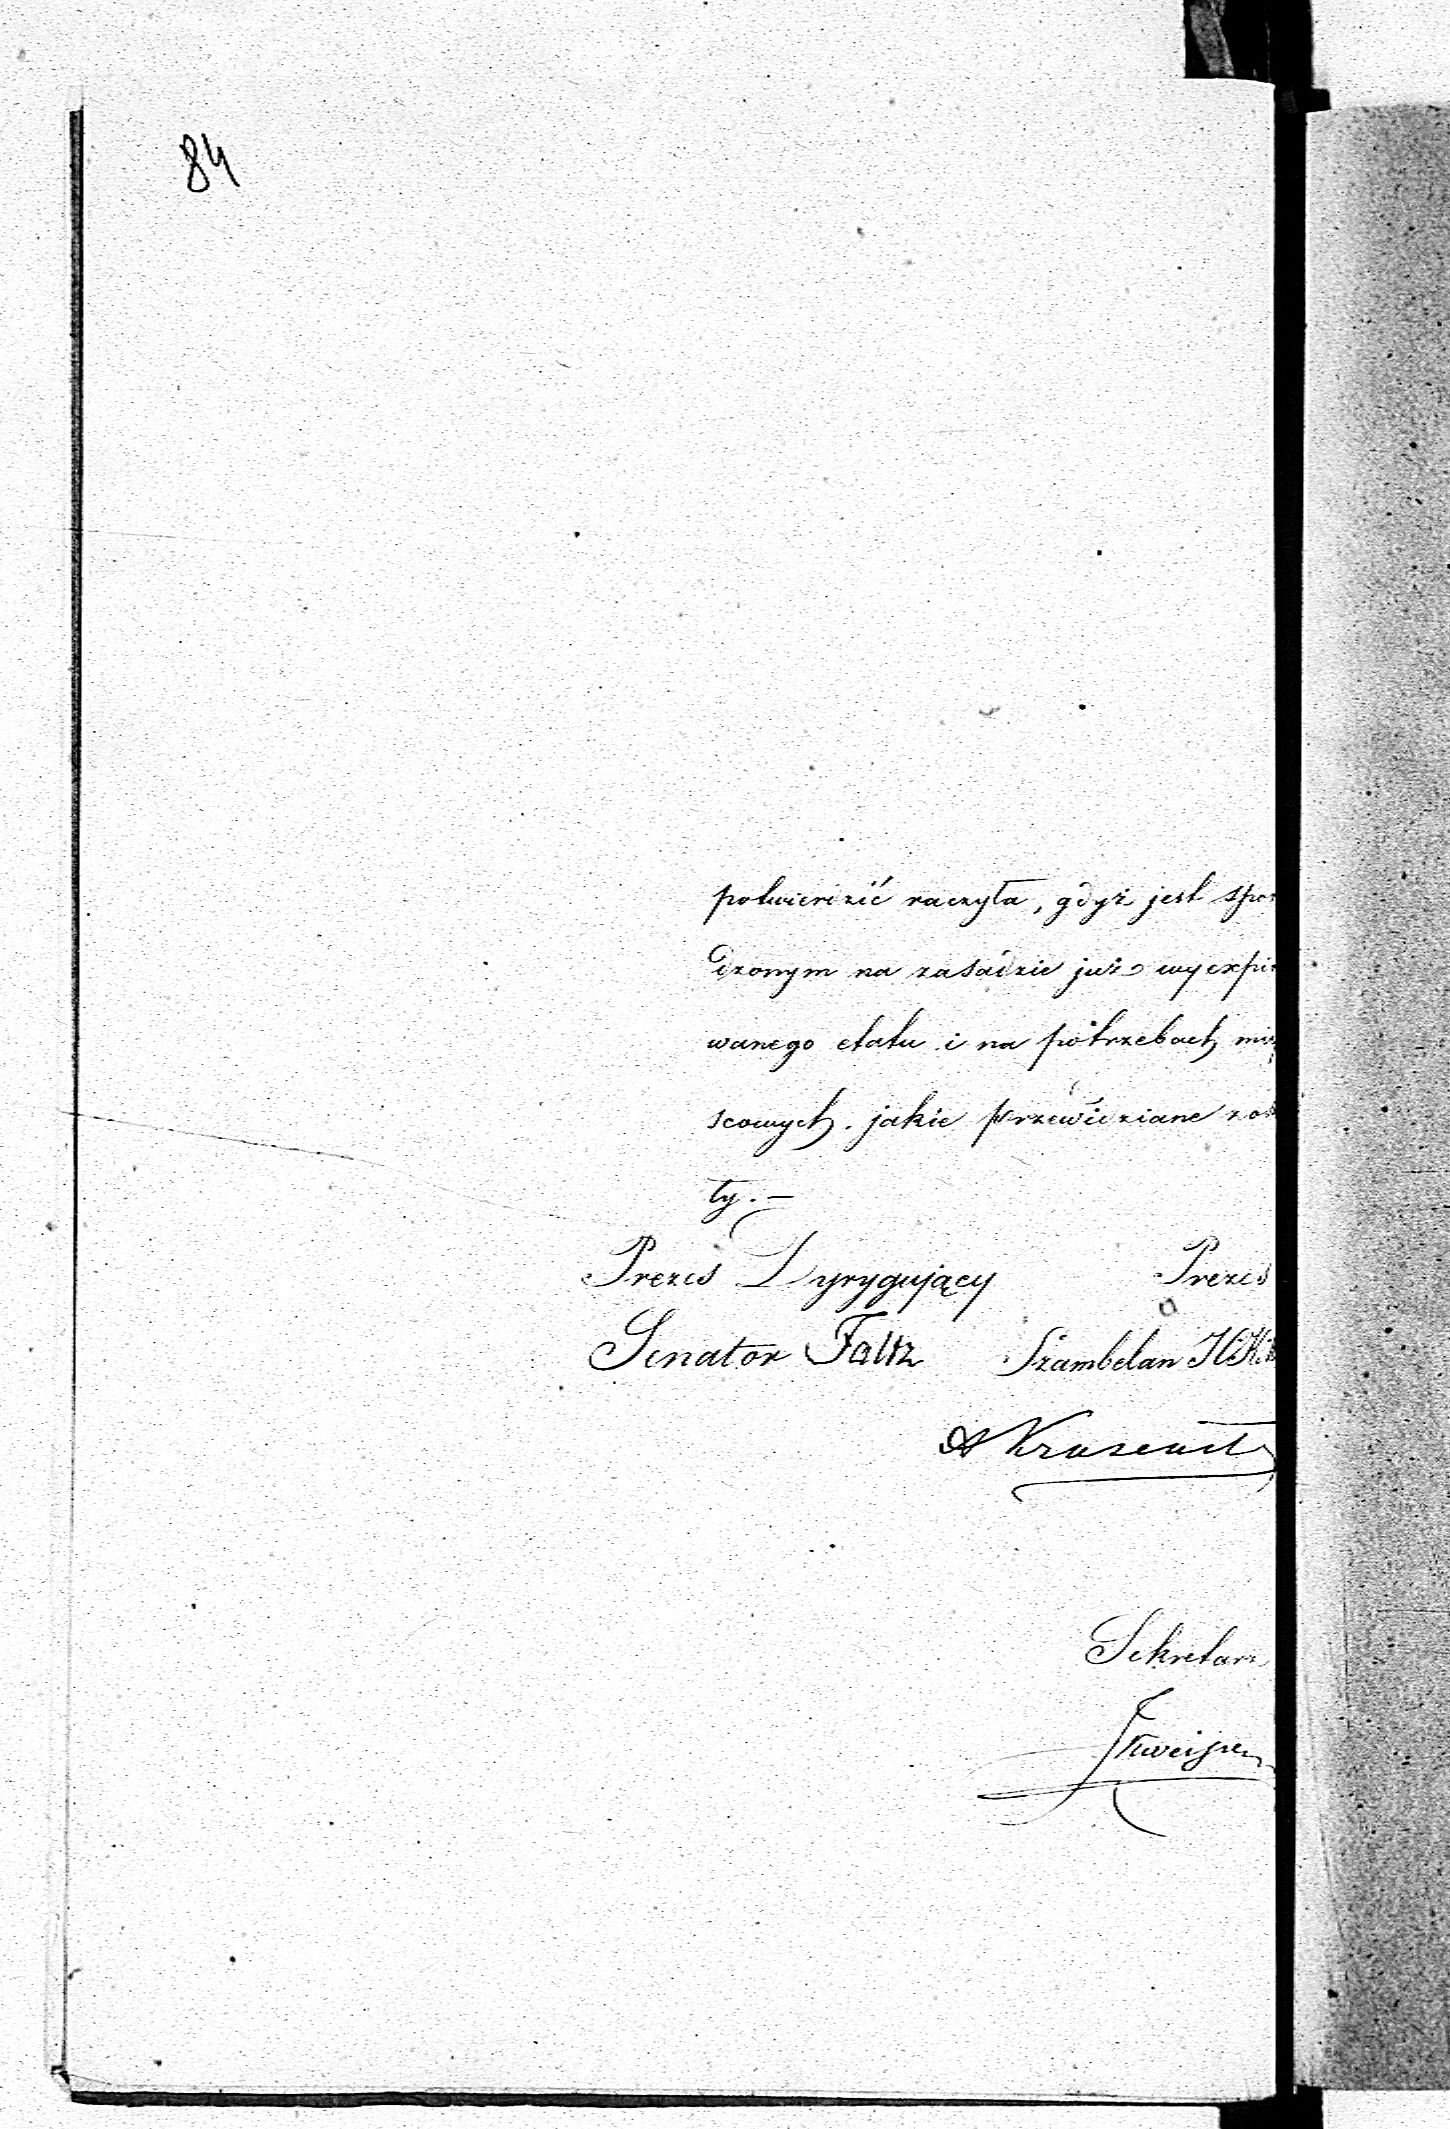 84
potwierdzić raczyła, gdyż jest spo
dzonym na zasadzie już wyexpi
wanego etatu i na potrzebach mie
scowych. jakie przewidziane zos
ły.—
Prezes Dyrygujący Prezes
Senator Faltz Szambelan
A
Sekretarz